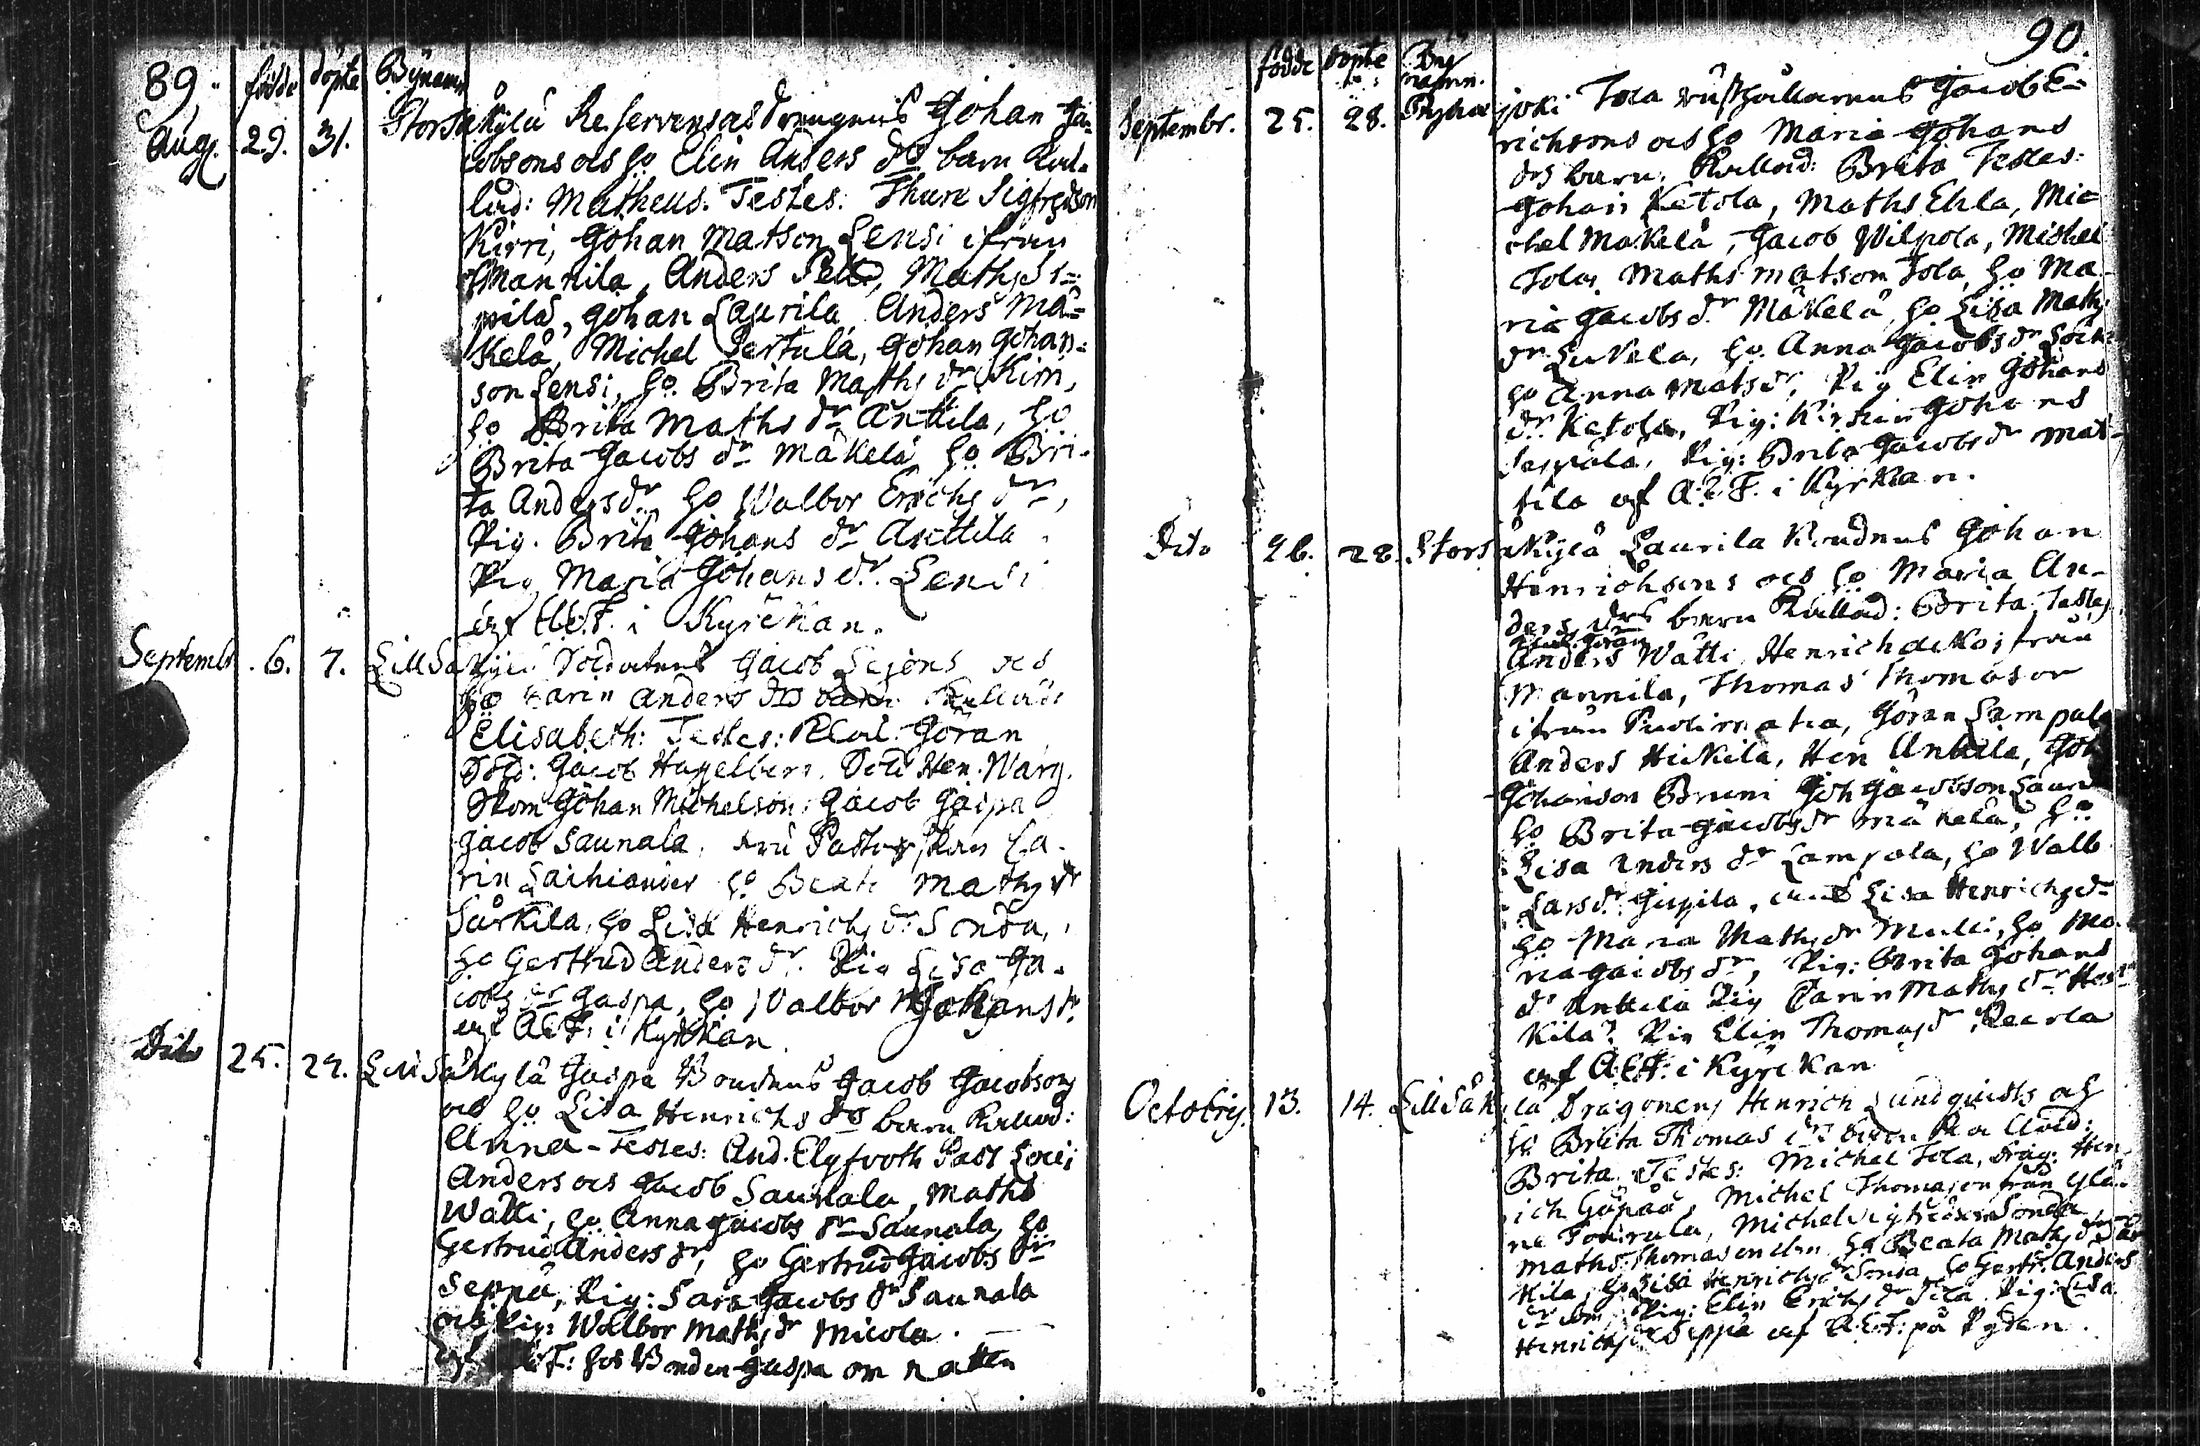 89. födde döpte Bÿnamn
Aug. 29. 31. Storsäkÿlä Reservens drengens Johan Ja-
cobsons och ho Elin Anders drs barn Kal-
lad: Matheus. Testes: Thure Sigfredson
Kirri, Johan Matson Lensi ifrån
Mannila, Anders Pello, Maths Si-
pilä, Johan Laurila, Anders Mä-
kelä, Michel Pertula, Johan Johan-
son Lensi, ho. Brita Maths dr Kirri,
ho Brita Maths dr Anttila, ho
Brita Jacobs dr Mäkelä, ho Bri-
ta Anders dr ho Walbor Erichs dr,
Pig. Brita Johans dr Anttila
Pig Maria Johans dr. Lensi
af A:E:F. i Kÿrckan.
Septembr. 6. 7. Lillsäkÿlä Soldatens Jacob Lejons och
ho Carin Anders drs barn Kallad:
Elisabeth: Testes: Göran
Sold: Jacob Hagelberg. Sold Hen. Warg.
Skom Johan Michelson, Jacob Jaspa
Jacob Saunala, Fru Pastorskan Ca-
rin ho Beata Maths dr
Särkilä, ho Lisa Henrichs dr Sonda,
ho Gertrud Anders dr. Pig Lisa Ja-
cobs dr Jaspa, ho Walbor Johans dr.
af A:E:F: i Kyrkan.
Dito 25. 29. Lillsäkylä Jaspa Bondens Jacob Jacobsons
och ho Lisa Henrichs drs barn Kallad:
Anna - Testes: And. Elgfooth Past
Anders och Jacob Saunala, Maths
Watti, ho. Anna Jacobs dr Saunala, ho
Gertrud Anders dr, ho Gertrud Jacobs dr
Seppä, Pig: Sara Jacobs dr Saunala
och Pig: Wallbor Maths dr Micola.
af A:E:F: hos Bonden Jaspa om natten
90.
födde döpte By namn.
Septembr. 25. 28. Pyhäjoki Tola rusthållarens Jacob E-
richsons och ho Maria Johans
drs barn. Kallad: Brita Testes:
Johan Ketola, Maths Ehla, Mic
chel Mäkelä, Jacob Wilpola, Michel
Tola, Maths Matson Tola, ho Ma-
ria Jacobs dr Mäkelä, ho Lisa Maths
dr. ho. Anna Jacobs dr
ho Anna Mats dr, Pig Elin Johans
dr Ketola, Pig: Kirstin Johans
Pig: Brita Jacobs dr Mat-
tila af A:E:F. i Kyrkan.
Dito 26. 28. Storsäkylä Laurila Bondens Johan
Henrichsens och ho Maria An-
ders drs barn Kallad: Brita Testes
Göran
Anders Watti Henrich ifrån
Mannila, Thomas Thomason
ifrån Göran Lampola
Anders Hickila, Hen Anttila, Joh
Johanson Bruni Joh Jacobson Laurila
ho Brita Jacobs dr Mäkelä, ho
Lisa Anders dr Lampola, ho Walb
Lars dr. Lisa Henrichs dr
ho Maria Maths dr ho Ma-
ria Jacobs dr, Pig: Brita Johans
dr Anttila Pig Carin Maths dr
kila, Pig Elin Thomas dr
af A:E:F: i Kyrckan
Octobris. 13. 14. Lillsäkylä Dragonens Henrich Lundquists och
ho Brita Thomas drs barn Kallad:
Brita Testes: Michel Tola, Drag: Hen-
rich Michel Thomason från Ylä-
ne Michel Sigfridson Sonda
Maths Thomason ho Beata Maths dr Sär
kilä, ho Lisa Henrichs dr Sonda ho Gertr. Anders
dr Pig: Elin Erichs dr Pig: Lisa
Henrichs dr Seppä af A:E:F: på Ryden.